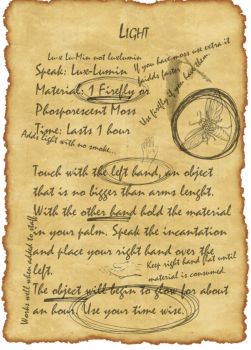 LIGHT
Lux Lu-Min not luxlumin
If you have moss use extra it
fades faster
Speak: Lux-Lumin
Use firefly if you have them
Material: 1 Firefly or
Phosporescent Moss
Time: Lasts 1 hour
Add light with no smoke...
Touch with the left hand, an object
that is no bigger than arms lenght.
With the other hand hold the material
in your palm. Speak the incantation
and place your right hand over the
left.
Keep right hand flat until
material is consumed
The object will begin to glow for about
an hour. Use your time wise.
Works well when added to staff